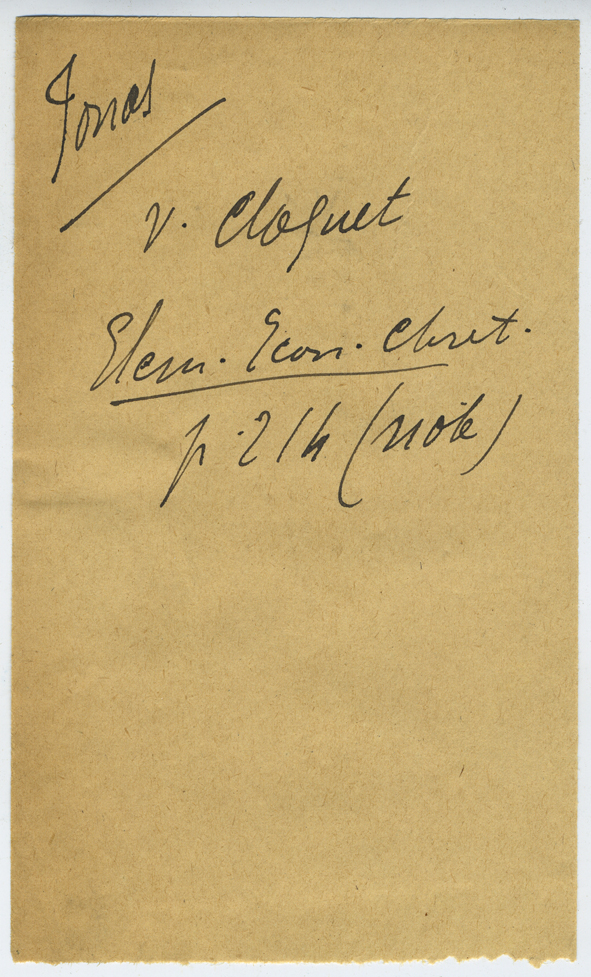 Jonas
v. Cloquet
Elem. Econ. Chret.
p. 214 (note)